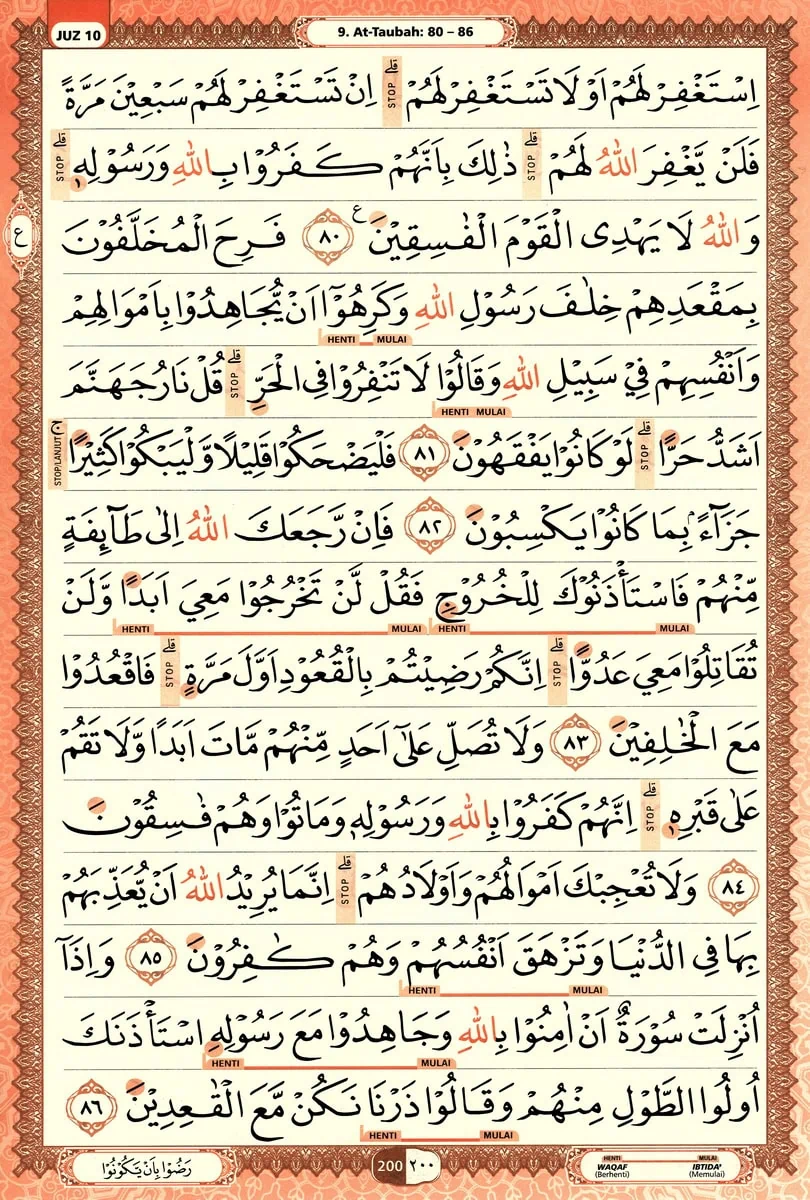 JUZ 10
9. At-Taubah: 80 – 86
اِسْتَغْفِرْ لَهُمْ اَوْ لَا تَسْتَغْفِرْ لَهُمْ ۗ STOP اِنْ تَسْتَغْفِرْ لَهُمْ سَبْعِيْنَ مَرَّةً
فَلَنْ يَّغْفِرَ اللّٰهُ لَهُمْ ۗ STOP ذٰلِكَ بِاَنَّهُمْ كَفَرُوْا بِاللّٰهِ وَرَسُوْلِهٖ ۗ STOP
ع وَاللّٰهُ لَا يَهْدِى الْقَوْمَ الْفٰسِقِيْنَ ࣖ ٨٠ فَرِحَ الْمُخَلَّفُوْنَ
بِمَقْعَدِهِمْ خِلٰفَ رَسُوْلِ اللّٰهِ وَكَرِهُوْٓا اَنْ يُّجَاهِدُوْا بِاَمْوَالِهِمْ
HENTI MULAI
وَاَنْفُسِهِمْ فِيْ سَبِيْلِ اللّٰهِ وَقَالُوْا لَا تَنْفِرُوْا فِى الْحَرِّ ۗ STOP قُلْ نَارُ جَهَنَّمَ
HENTI MULAI
اَشَدُّ حَرًّا ۗ STOP لَوْ كَانُوْا يَفْقَهُوْنَ ٨١ فَلْيَضْحَكُوْا قَلِيْلًا وَّلْيَبْكُوْا كَثِيْرًاۚ STOP/LANJUT
جَزَاۤءًۢ بِمَا كَانُوْا يَكْسِبُوْنَ ٨٢ فَاِنْ رَّجَعَكَ اللّٰهُ اِلٰى طَاۤىِٕفَةٍ
مِّنْهُمْ فَاسْتَأْذَنُوْكَ لِلْخُرُوْجِ فَقُلْ لَّنْ تَخْرُجُوْا مَعِيَ اَبَدًا وَّلَنْ
HENTI MULAI HENTI MULAI
تُقَاتِلُوْا مَعِيَ عَدُوًّا ۗ STOP اِنَّكُمْ رَضِيْتُمْ بِالْقُعُوْدِ اَوَّلَ مَرَّةٍ ۗ STOP فَاقْعُدُوْا
مَعَ الْخٰلِفِيْنَ ٨٣ وَلَا تُصَلِّ عَلٰٓى اَحَدٍ مِّنْهُمْ مَّاتَ اَبَدًا وَّلَا تَقُمْ
عَلٰى قَبْرِهٖ ۗ STOP اِنَّهُمْ كَفَرُوْا بِاللّٰهِ وَرَسُوْلِهٖ وَمَاتُوْا وَهُمْ فٰسِقُوْنَ
٨٤ وَلَا تُعْجِبْكَ اَمْوَالُهُمْ وَاَوْلَادُهُمْ ۗ STOP اِنَّمَا يُرِيْدُ اللّٰهُ اَنْ يُّعَذِّبَهُمْ
بِهَا فِى الدُّنْيَا وَتَزْهَقَ اَنْفُسُهُمْ وَهُمْ كٰفِرُوْنَ ٨٥ وَاِذَآ
HENTI MULAI
اُنْزِلَتْ سُوْرَةٌ اَنْ اٰمِنُوْا بِاللّٰهِ وَجَاهِدُوْا مَعَ رَسُوْلِهِ اسْتَأْذَنَكَ
HENTI MULAI
اُولُوا الطَّوْلِ مِنْهُمْ وَقَالُوْا ذَرْنَا نَكُنْ مَّعَ الْقٰعِدِيْنَ ٨٦
HENTI MULAI
رَضُوْا بِاَنْ يَّكُوْنُوْا
200 ٢٠٠
HENTI MULAI
WAQAF IBTIDA'
(Berhenti) (Memulai)